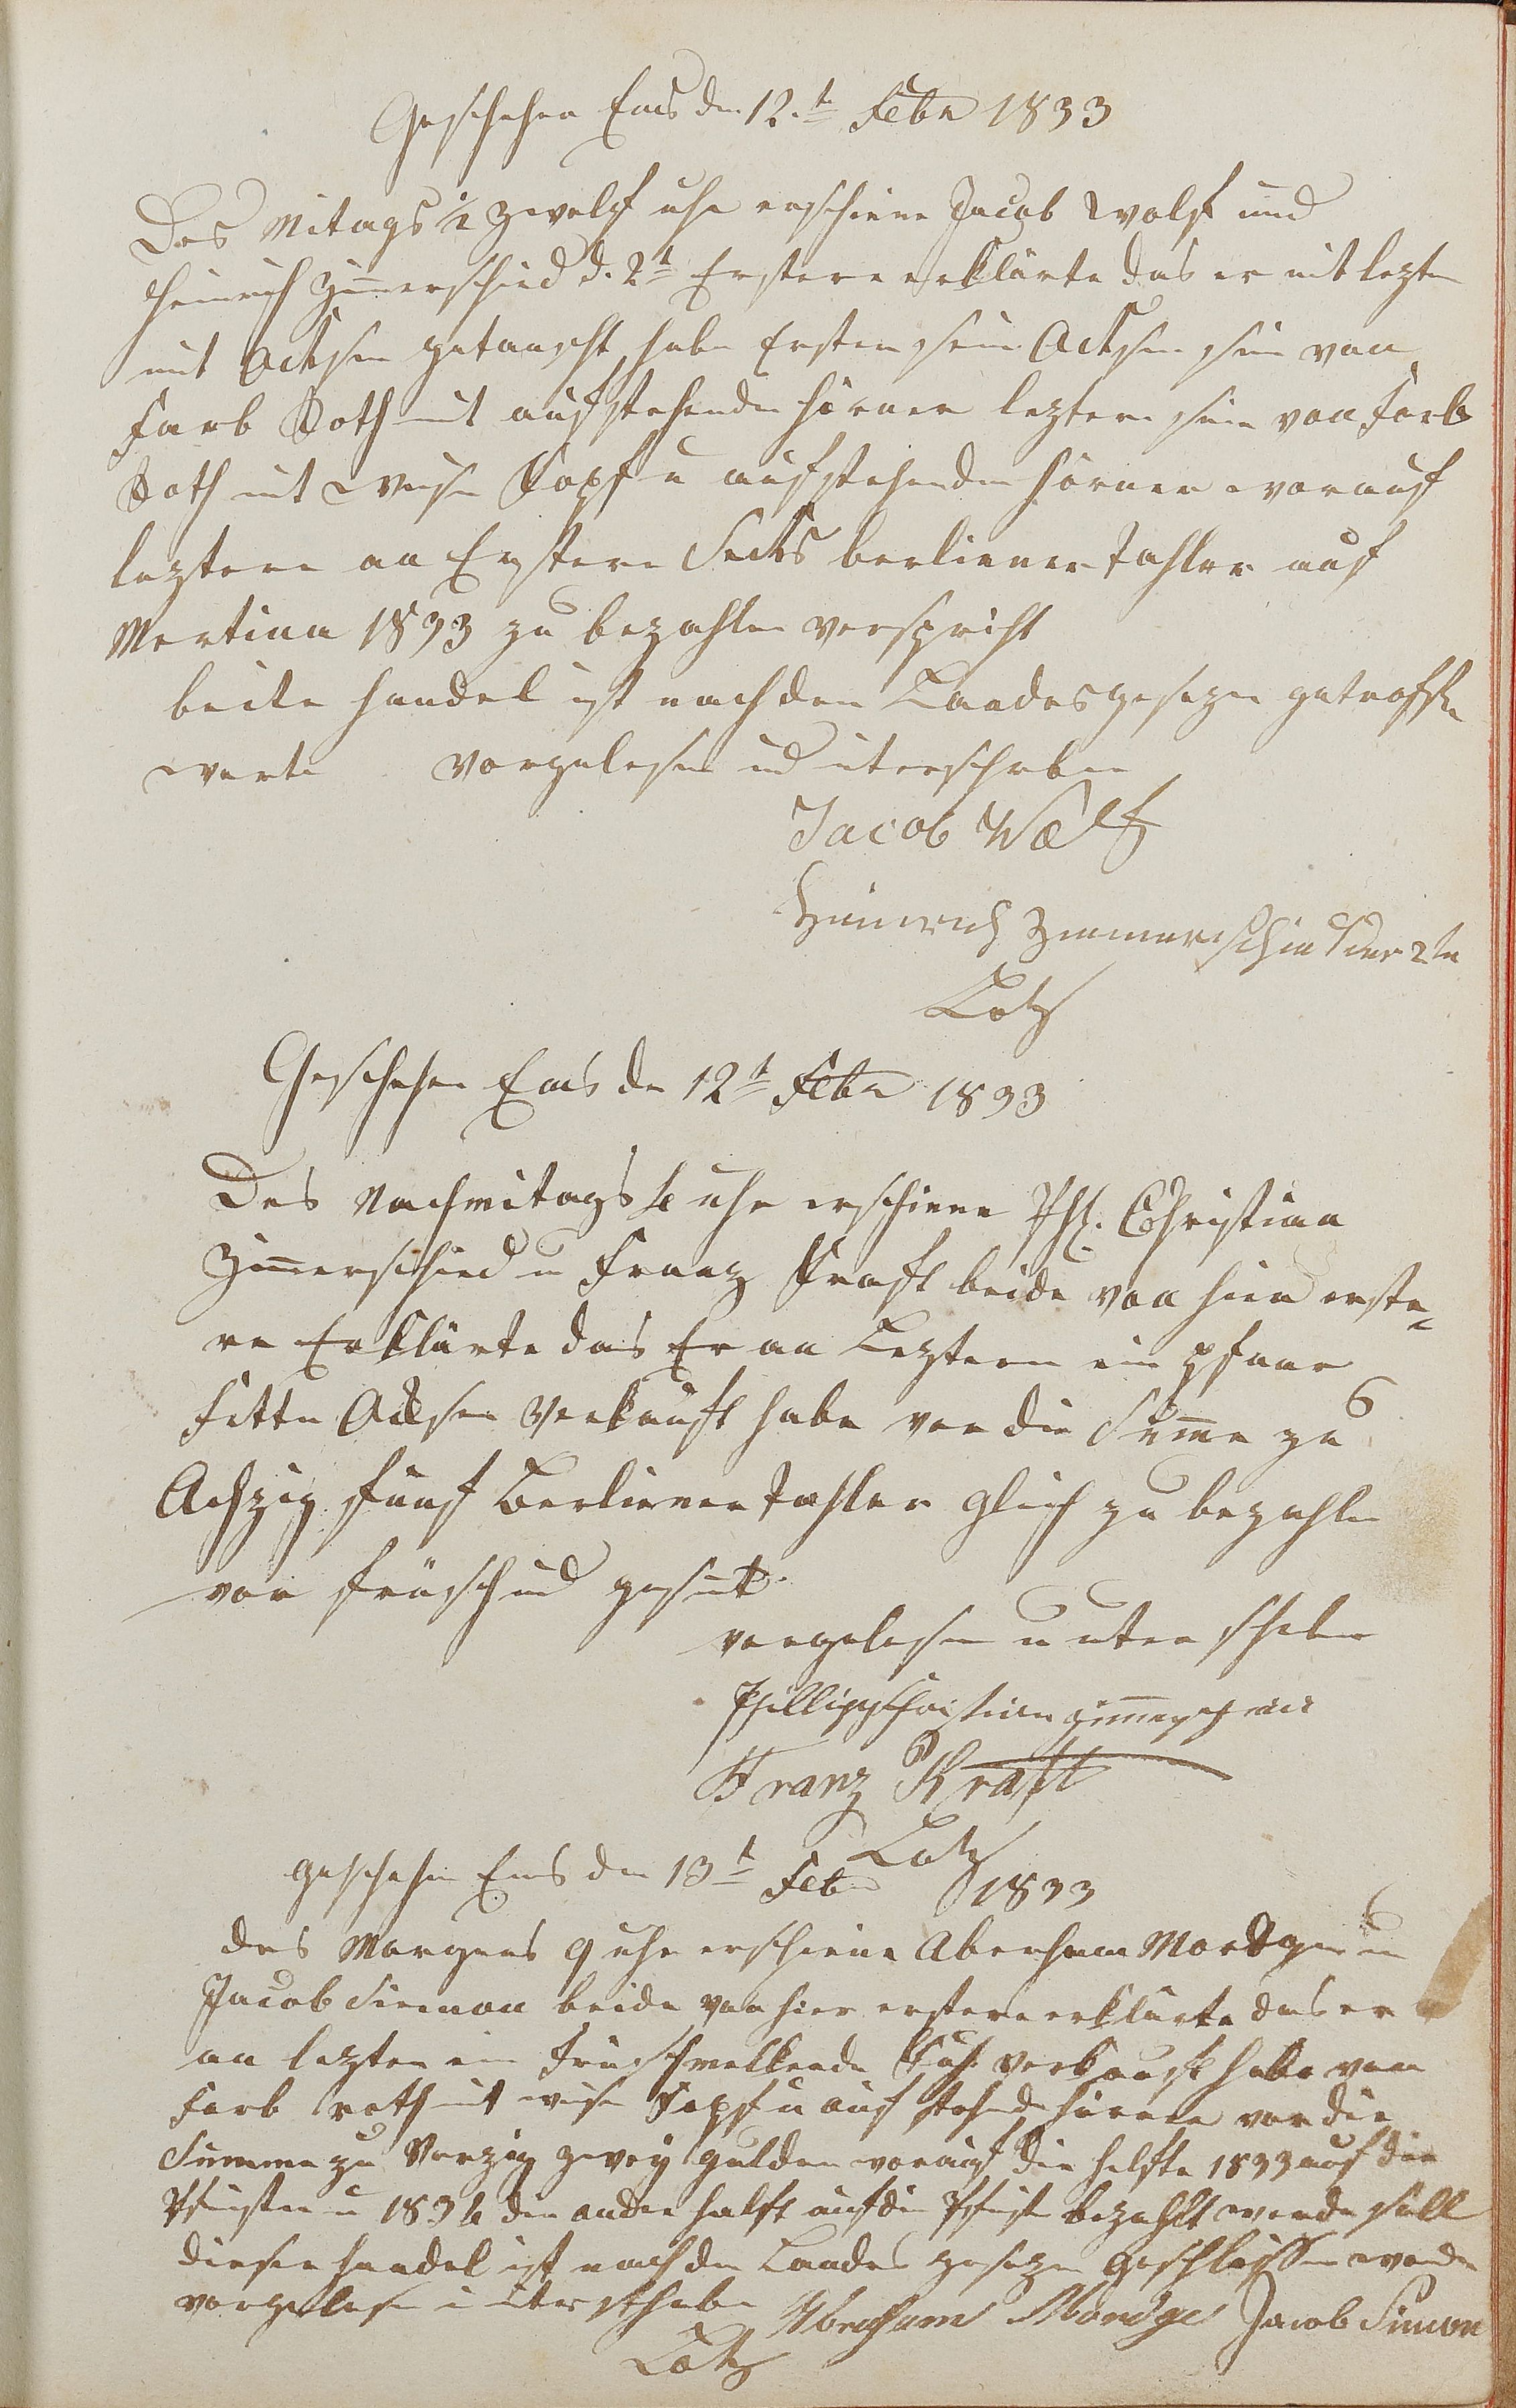 Geschehen Ems den 12.t Febr 1833
Des Mitags ½ zwelf uhr erschiene Jacob Wolf und
Heinrich Zim̅erschied d. 2t Erstere erklärte das er mit lezten
mit Ocksen getauscht habe Ersten sein Ocksen sein von
Farb Roth mit aufstehenden Hörner leztern sein von Farb
Roth mit weisen Kopf u aufstehenden Hörner worauf
leztere an Erstern Secks berliener Tahler auf
Mertini 1833 zu bezahlen verspricht
beite Handel ist nach den Landesgesezen getroffen
worte vorgelesen und unterschrben
Jacob Wolf
Heinrich Zimmerschied der 2te
Lotz
Geschehen Ems den 12t Febr 1833
Des Nachmitags 4 uhr erschiene Phl. Christian
Zim̅erschied u Franz Kraft beide von hier erste=
re Erklärte das Er an Leztern ein pfaar
Fette Ocksen Verkauft habe vor die Sum̅e zu
Achzig fünf Berliener Tahler gleich zu bezahlen
vor frisch und gesund
vorgelesen u unterschrben
Phillipp Christian Zim̅erschied
Franz Kraft
Lotz
Geschehen Ems den 13t Febr 1833
des Morgens 9 uhr erschiene Aberham Mordge u
Jacob Siemon beide von hier erstere erklärte das er
an lezten ein frischmelkende Kuh verkauft habe von
Farb roth mit weisen Kopf u auf stehende Hörner vor die
Summe zu Vierzig zwey gulden worauf die helfte 1833 auf die
Pfingsten u 1834 den ander halft auf die Pfingsten bezahlt werde soll
dieser Handel ist nach den Landes gesezen geschlossen worden
vorgelesen u unterschrben Abraham Mordge Jacob Simon
Lotz